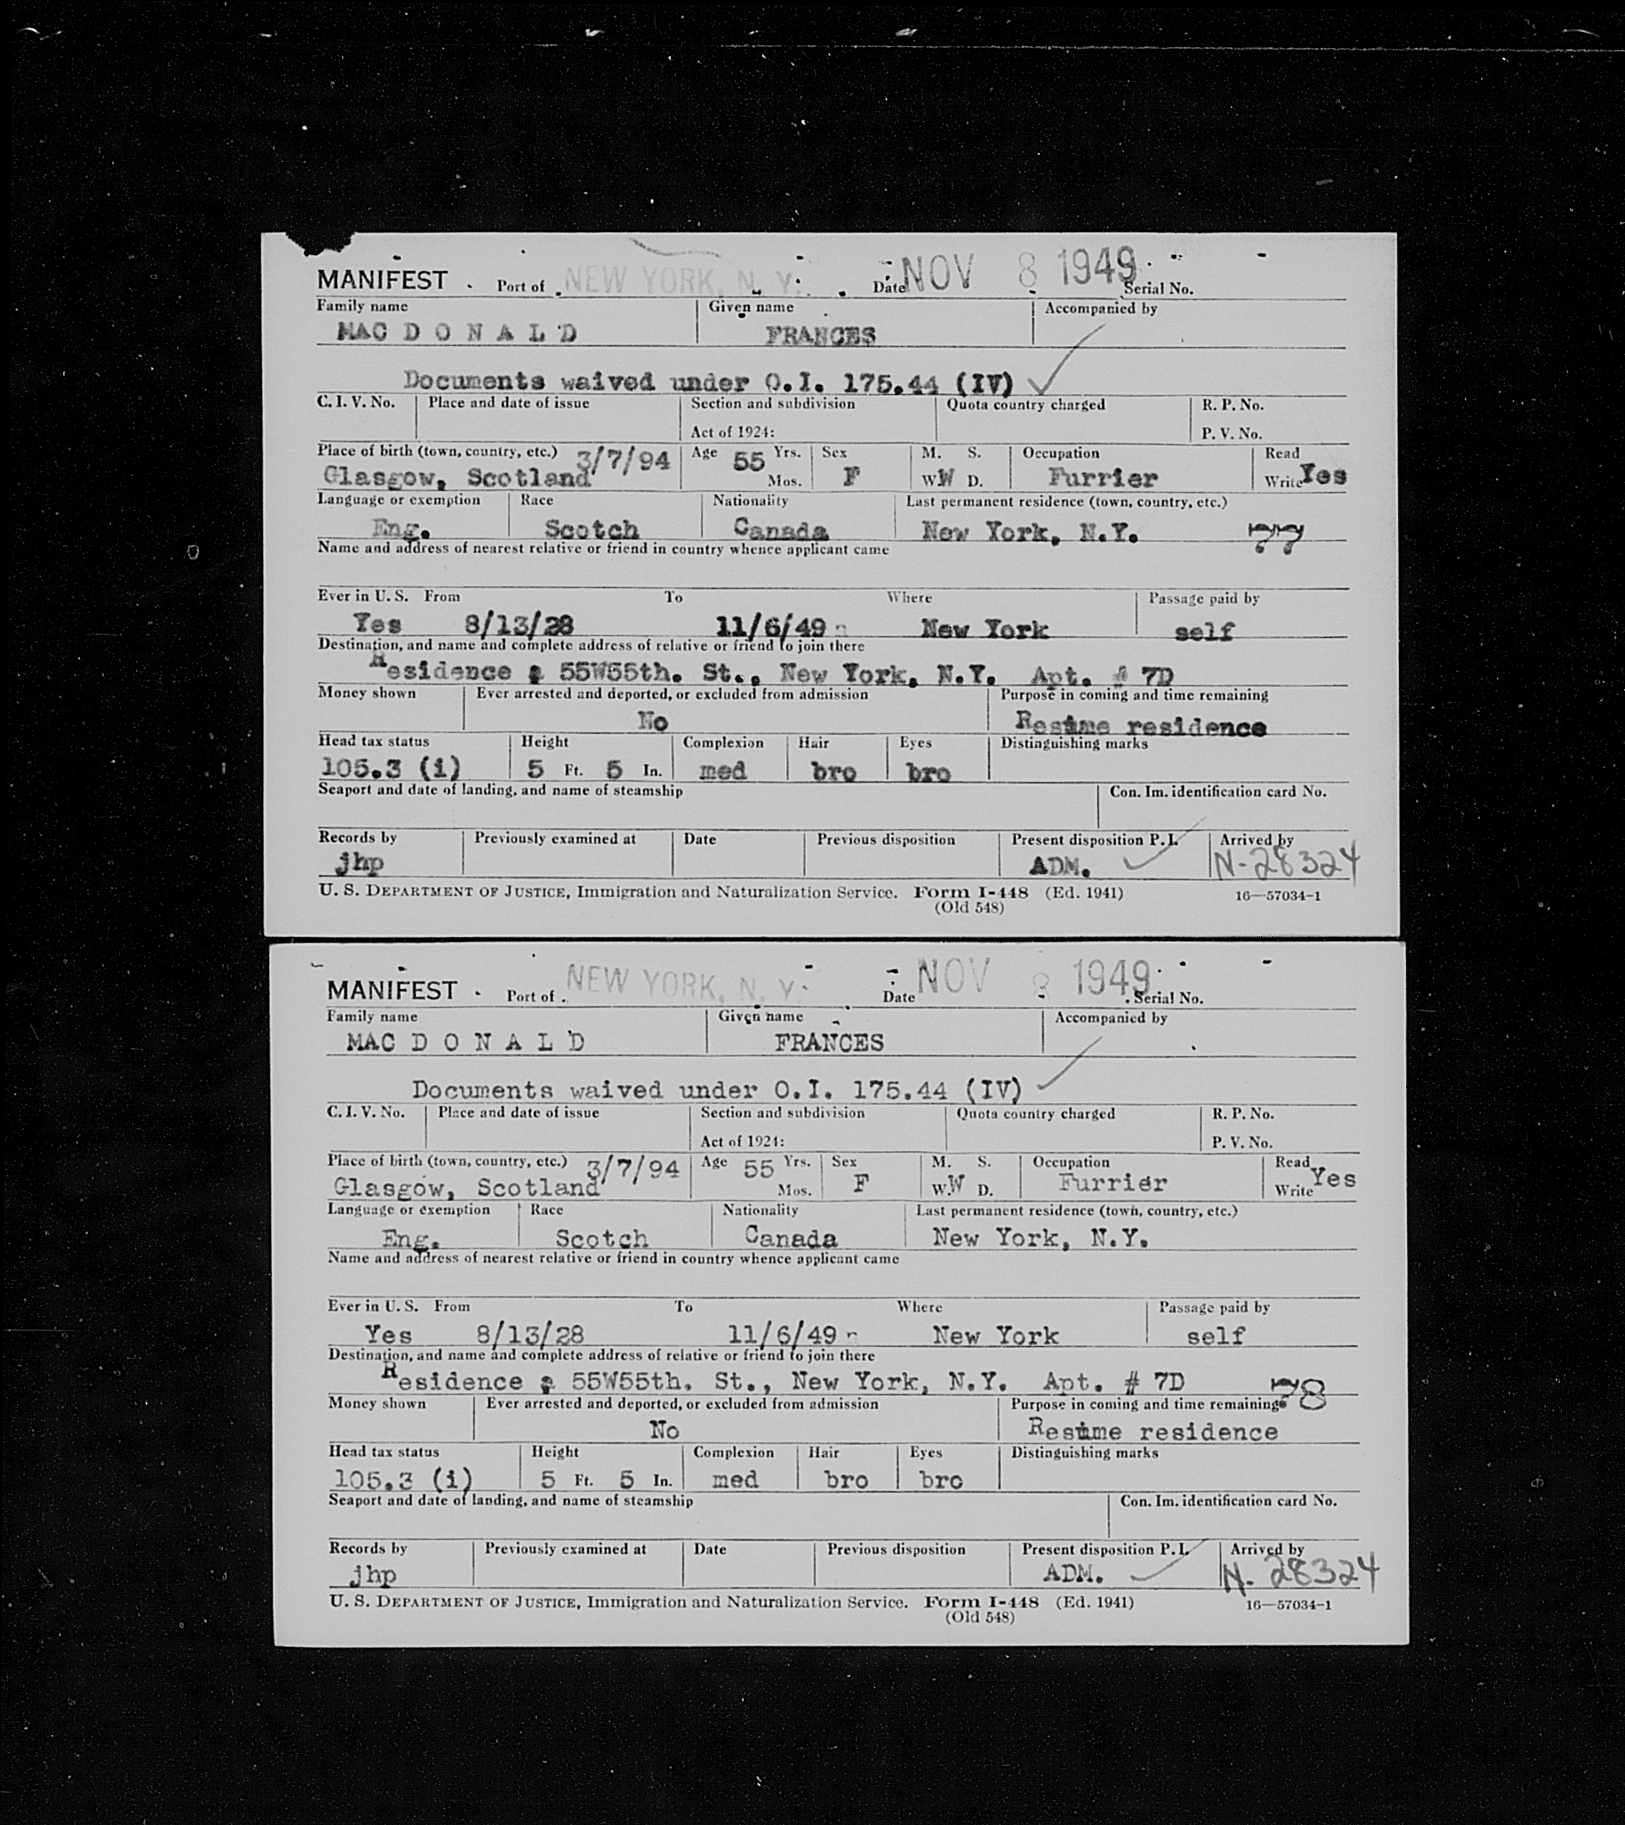 MANIFEST Port of NEW YORK, N. Y. Date NOV 8 1949 Serial No.
Family name Given name Accompanied by
MAC D O N A L D FRANCES
Documents waived under O.I. 175.44 (IV)
C. I. V. No. Place and date of issue Section and subdivision Quota country charged R. P. No.
Act of 1924: P. V. No.
Place of birth (town, country, etc.) 3/7/94 Age 55 Yrs. Sex M. S. Occupation Read
Glasgow, Scotland Mos. F W. W D. Furrier Write Yes
Language or exemption Race Nationality Last permanent residence (town, country, etc.)
Eng. Scotch Canada New York, N.Y. 77
Name and address of nearest relative or friend in country whence applicant came
Ever in U. S. From To Where Passage paid by
Yes 8/13/28 11/6/49 New York self
Destination, and name and complete address of relative or friend to join there
Residence 55W55th. St., New York, N.Y. Apt. # 7D
Money shown Ever arrested and deported, or excluded from admission Purpose in coming and time remaining
No Resume residence
Head tax status Height Complexion Hair Eyes Distinguishing marks
105.3 (i) 5 Ft. 5 In. med bro bro
Seaport and date of landing, and name of steamship Con. Im. identification card No.
Records by Previously examined at Date Previous disposition Present disposition P. I. Arrived by
jhp ADM. N-28324
U. S. DEPARTMENT OF JUSTICE, Immigration and Naturalization Service. Form I-448 (Ed. 1941) 16—57034-1
(Old 548)
MANIFEST Port of NEW YORK, N. Y. Date NOV 8 1949 Serial No.
Family name Given name Accompanied by
MAC D O N A L D FRANCES
Documents waived under O.I. 175.44 (IV)
C. I. V. No. Place and date of issue Section and subdivision Quota country charged R. P. No.
Act of 1924: P. V. No.
Place of birth (town, country, etc.) 3/7/94 Age 55 Yrs. Sex M. S. Occupation Read
Glasgow, Scotland Mos. F W. W D. Furrier Write Yes
Language or exemption Race Nationality Last permanent residence (town, country, etc.)
Eng. Scotch Canada New York, N.Y.
Name and address of nearest relative or friend in country whence applicant came
Ever in U. S. From To Where Passage paid by
Yes 8/13/28 11/6/49 New York self
Destination, and name and complete address of relative or friend to join there
Residence 55W55th. St., New York, N.Y. Apt. # 7D 78
Money shown Ever arrested and deported, or excluded from admission Purpose in coming and time remaining
No Resume residence
Head tax status Height Complexion Hair Eyes Distinguishing marks
105.3 (i) 5 Ft. 5 In. med bro bro
Seaport and date of landing, and name of steamship Con. Im. identification card No.
Records by Previously examined at Date Previous disposition Present disposition P. I. Arrived by
jhp ADM. N-28324
U. S. DEPARTMENT OF JUSTICE, Immigration and Naturalization Service. Form I-448 (Ed. 1941) 16—57034-1
(Old 548)